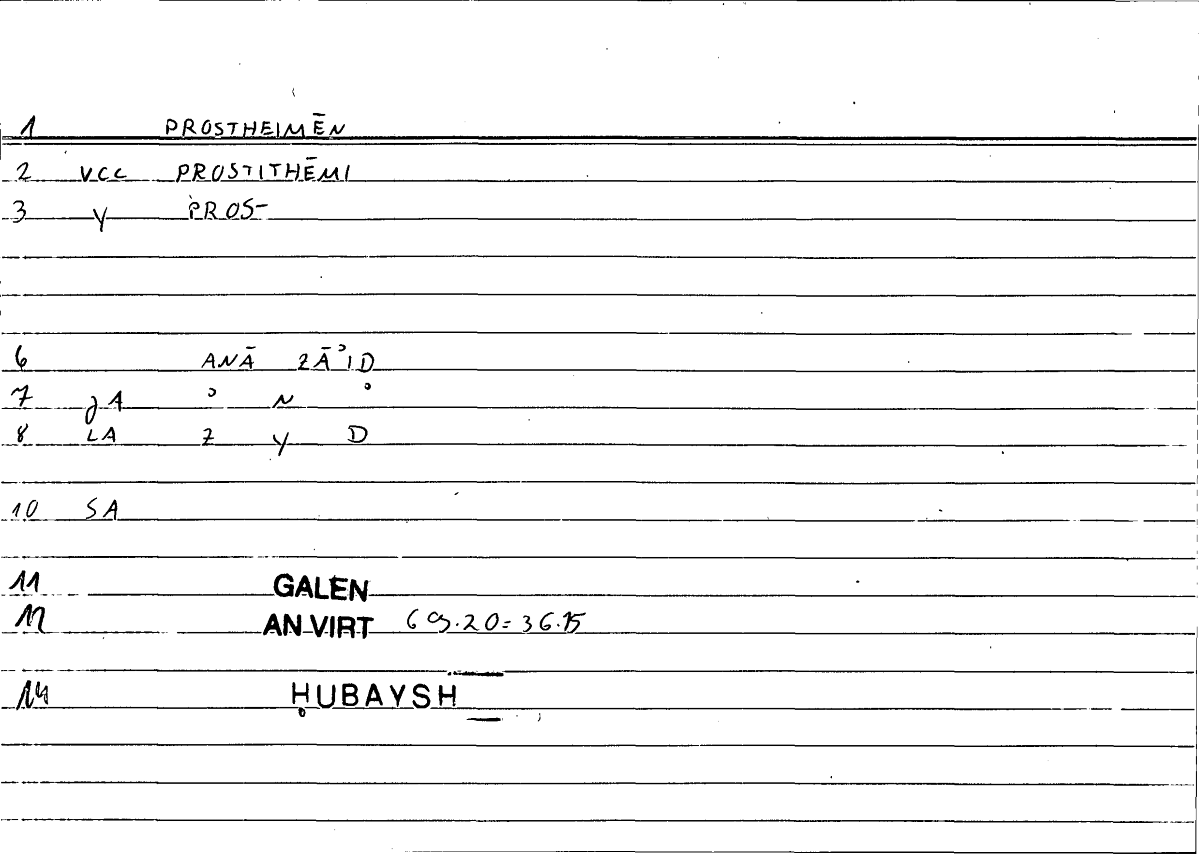 1 PROSTHEIMĒN
2 VCC PROSTITHĒMI
3 Y PROS-
6 ANĀ ZĀʾID
7 JA ʾ N ʾ
8 LA Z Y D
10 SA
11 GALEN
12 AN.VIRT 69.20=36.15
14 ḤUBAYSH